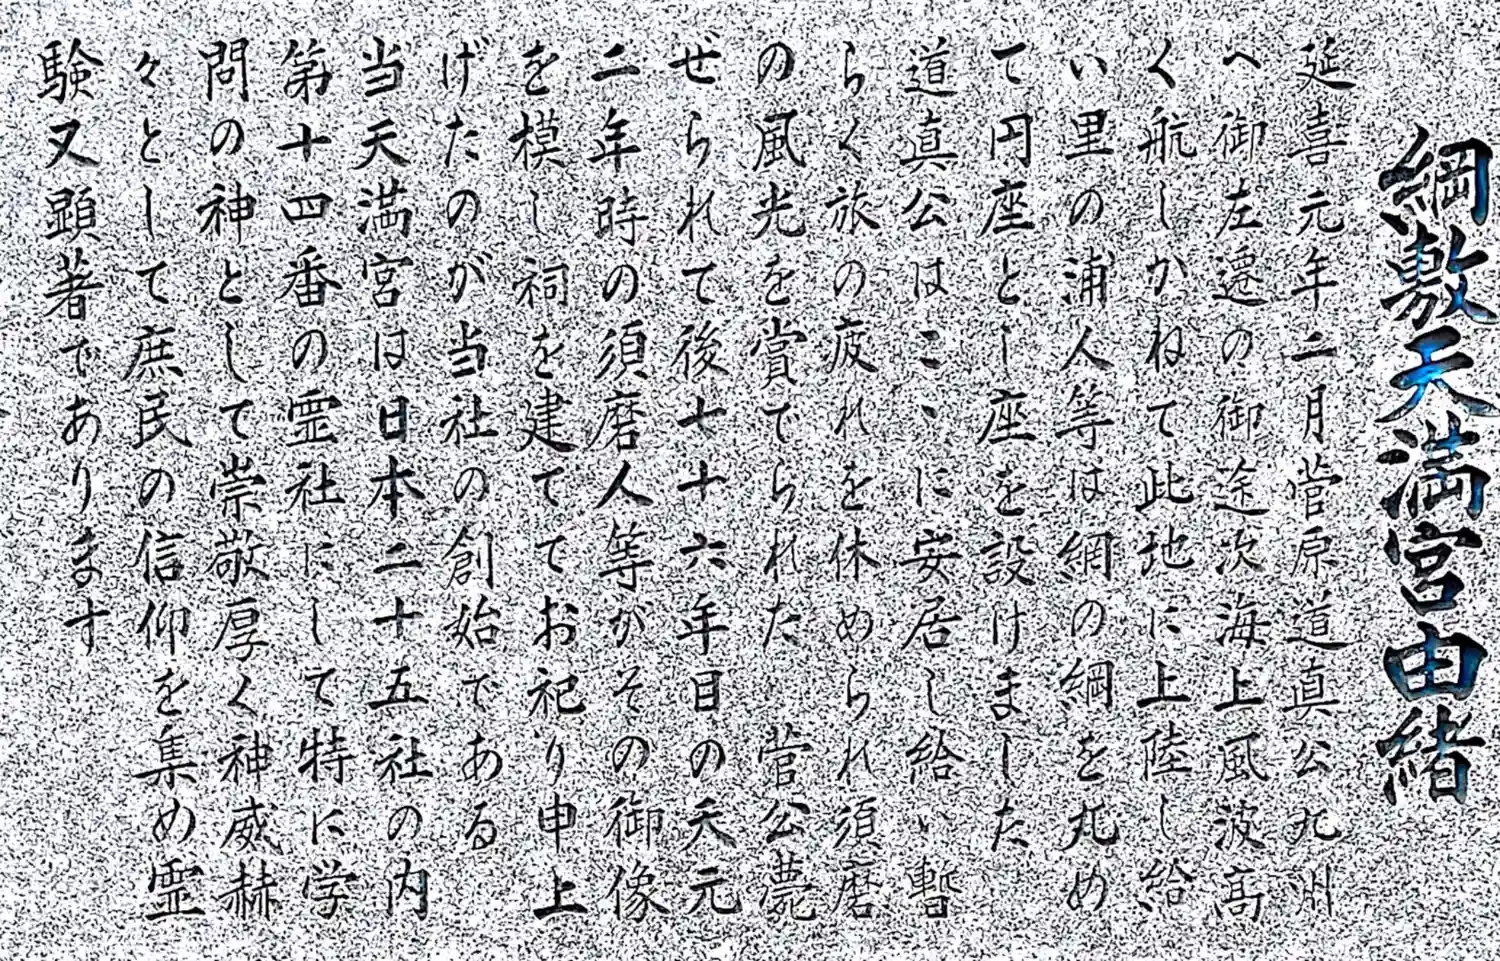 綱敷天満宮由緒
延喜元年二月菅原道真公九州
へ御左遷の御途次海上風波高
く航しかねて此地に上陸し給
い里の浦人等は網の綱を丸め
て円座とし座を設けました
道真公はこゝに安居し給い暫
らく旅の疲れを休められ須磨
の風光を賞でられた　菅公薨
ぜられて後七十六年目の天元
二年時の須磨人等がその御像
を模し祠を建ててお祀り申上
げたのが当社の創始である
当天満宮は日本二十五社の内
第十四番の霊社にして特に学
問の神として崇敬厚く神威赫
々として庶民の信仰を集め霊
験又顕著であります